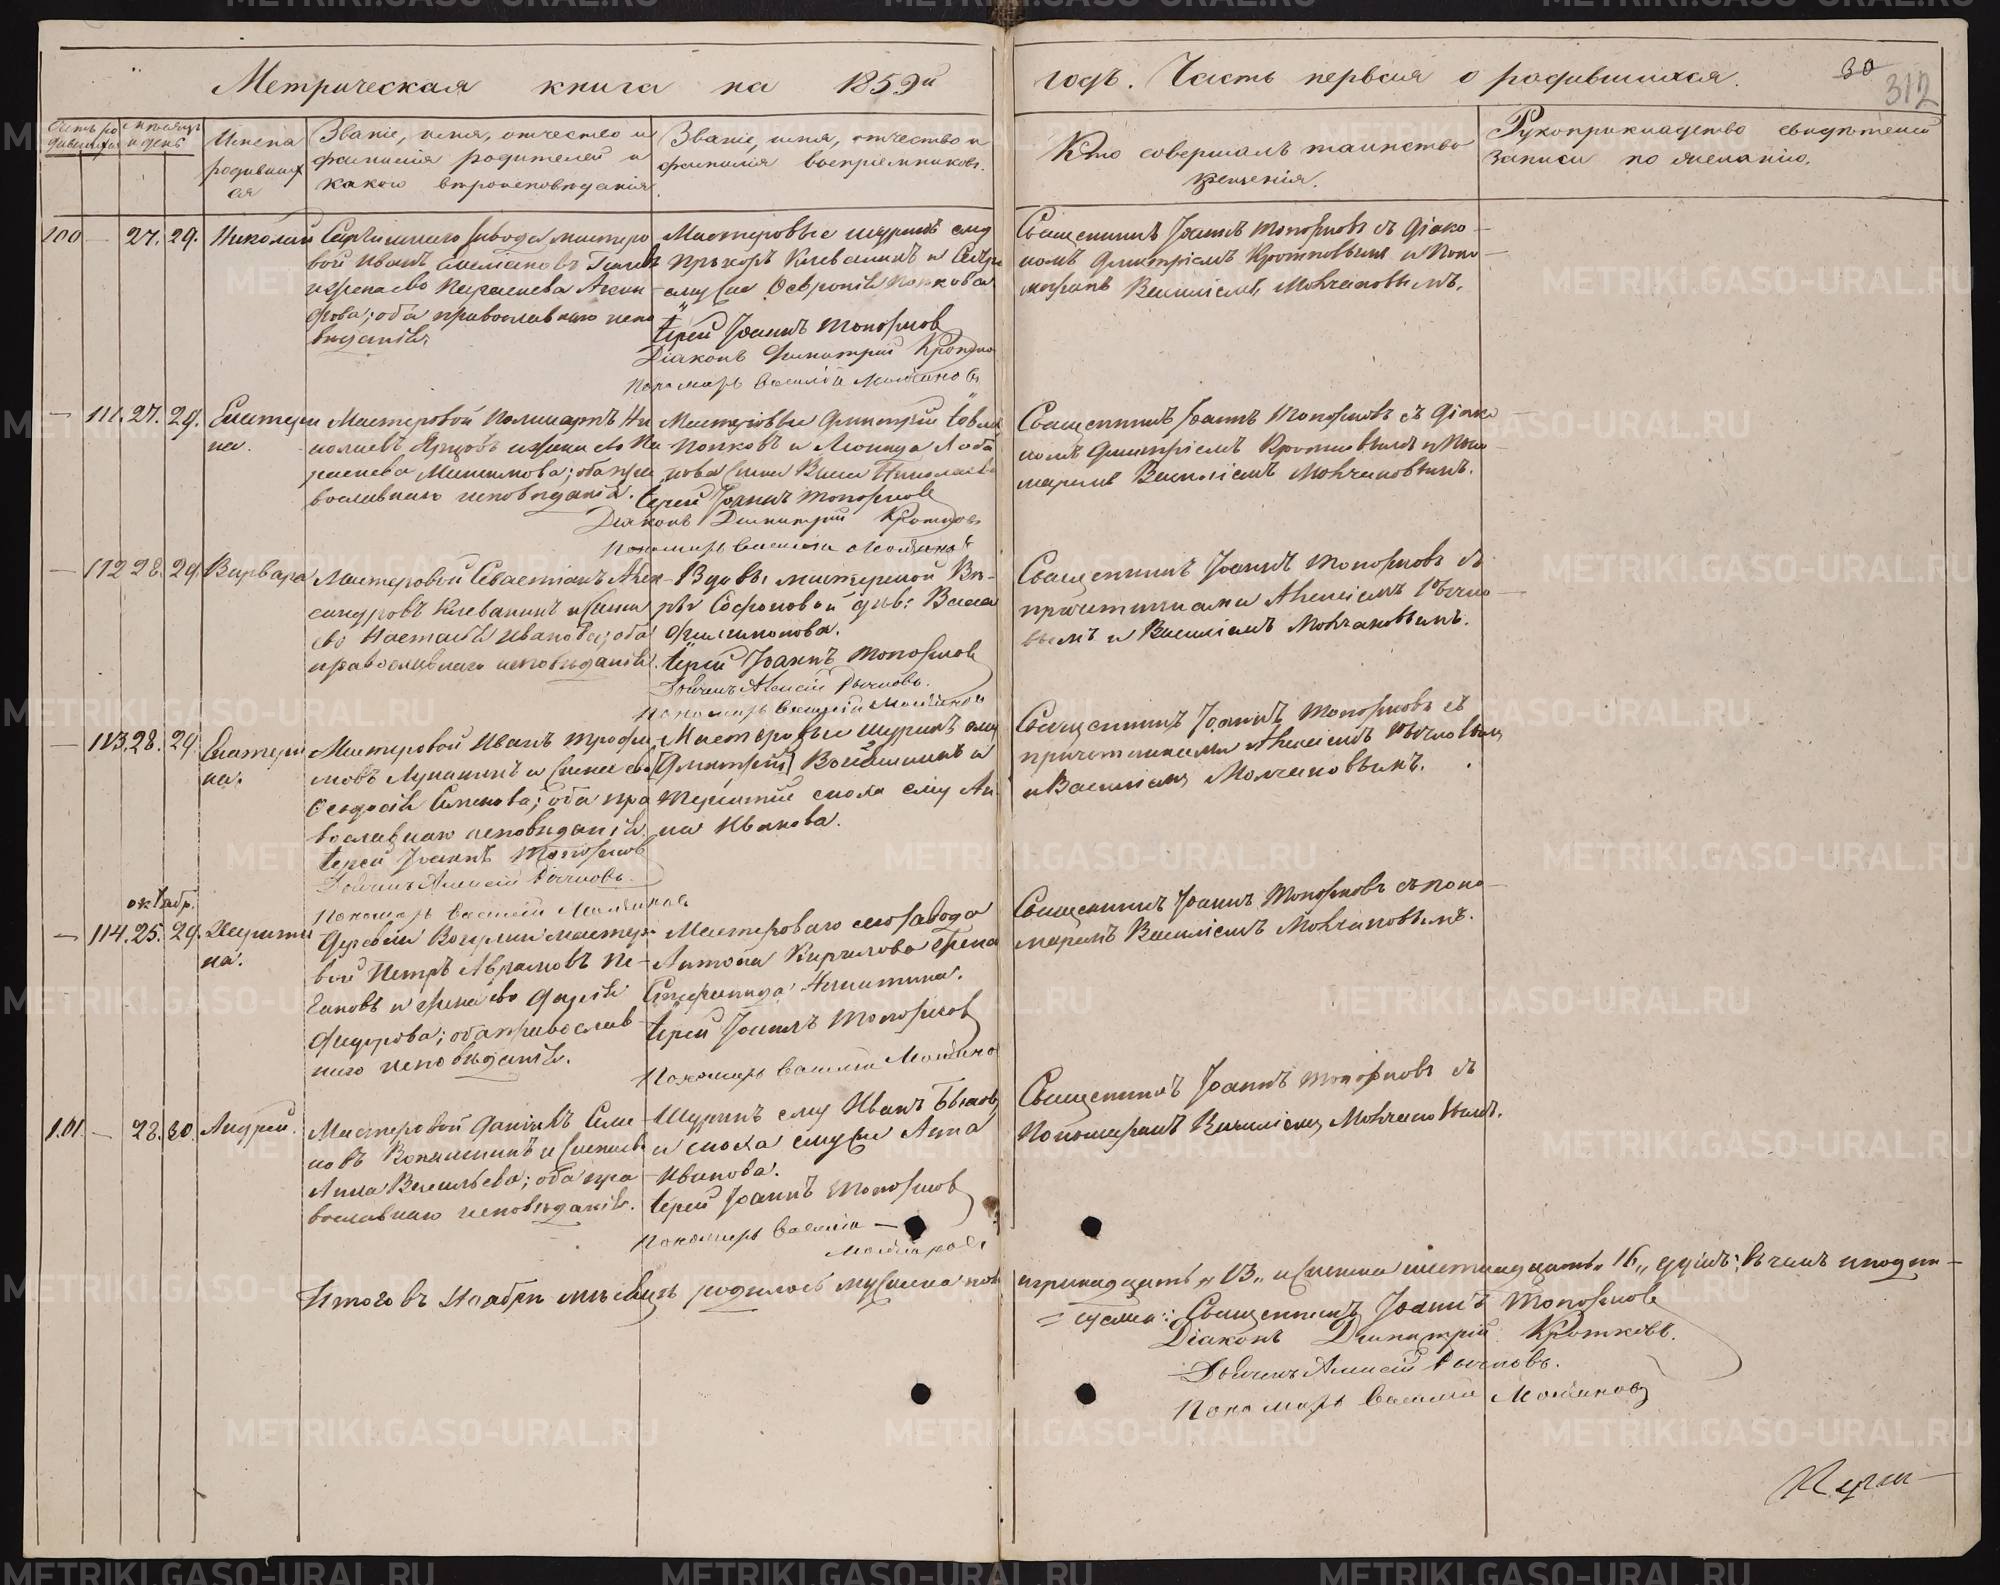 Метрическая книга на 1859й годъ. Часть первая о родившихся.
30
312
Счетъ родившихся
Мѣсяцъ и день
Имена родившихся
Званіе, имя, отчество и фамилія родителей и какого вѣроисповѣданія
Званіе, имя, отчество и фамилія воспріемниковъ.
Кто совершалъ таинство крещенія.
Рукоприкладство свидѣтелей записи по желанію.
100 — 27. 29. Николай
завода мастеро
вой Иванъ Емеліановъ
и жена его Параскева
; оба православнаго испо
вѣданія.
Мастеровые шуринъ ему
Іерей Іоаннъ Топорковъ
Діаконъ Димитрій Кротковъ
Пономарь Василій Молчановъ
Священникъ Іоаннъ Топорковъ съ діако
номъ Димитріемъ Кротковымъ и Поно
маремъ Василіемъ Молчановымъ.
— 111. 27. 29. Екатери
на.
Мастеровой Поликарпъ Ни
колаевъ и жена его Па
раскева Максимова; оба пра
вославнаго исповѣданія.
Мастеровые Димитрій
Попковъ и
Іерей Іоаннъ Топорковъ
Діаконъ Димитрій Кротковъ
Пономарь Василій Молчановъ
Священникъ Іоаннъ Топорковъ съ діако
номъ Димитріемъ Кротковымъ и Поно
маремъ Василіемъ Молчановымъ.
— 112 28. 29. Варвара
Мастеровой Севастіанъ Алек
сандровъ Клевакинъ и жена
его Настасія Иванова; оба
православнаго исповѣданія.
Вдовы мастерской
Софоновой
Филимонова.
Іерей Іоаннъ Топорковъ
Дьячекъ Алексій Рычковъ.
Пономарь Василій Молчановъ
Священникъ Іоаннъ Топорковъ съ
причетниками Алексіемъ Рычко
вымъ и Василіемъ Молчановымъ.
— 113. 28. 29. Екатери
на.
Мастеровой Иванъ Трофи
мовъ Лукакинъ и жена его
Феодосія Семенова; оба пра
вославнаго исповѣданія.
Іерей Іоаннъ Топорковъ
Дьячекъ Алексій Рычковъ.
Пономарь Василій Молчановъ
Мастеровые шуринъ ему
Димитрій и
сноха ему Ан
на Иванова.
Священникъ Іоаннъ Топорковъ съ
причетниками Алексіемъ Рычковымъ
и Василіемъ Молчановымъ.
октябр.
— 114. 25. 29. Харити
на.
Деревни мастеро
вой Петръ Аврамовъ
и жена его Дарія
Федорова; оба православ
наго исповѣданія.
Мастероваго сего завода
Антона Кирилова жена
Стефанида Никитина.
Іерей Іоаннъ Топорковъ
Пономарь Василій Молчанов
Священникъ Іоаннъ Топорковъ съ поно
маремъ Василіемъ Молчановымъ.
101. — 28. 30. Андрей.
Мастеровой Даніилъ Симе
новъ и жена его
Анна Васильева; оба пра
вославнаго исповѣданія.
Шуринъ ему Иванъ Быков
и сноха ему же Анна
Иванова.
Іерей Іоаннъ Топорковъ
Пономарь Василій
Молчановъ
Священникъ Іоаннъ Топорковъ съ
Пономаремъ Василіемъ Молчановымъ.
Итого въ Ноябрѣ мѣсяцѣ родилось мужеска пола тринадцать „13„ и женска шестнадцать „16„ душъ; въ чемъ и подпи
суемся: Священникъ Іоаннъ Топорковъ
Діаконъ Димитрій Кротковъ.
Дьячекъ Алексій Рычковъ.
Пономарь Василій Молчановъ
METRIKI.GASO-URAL.RU